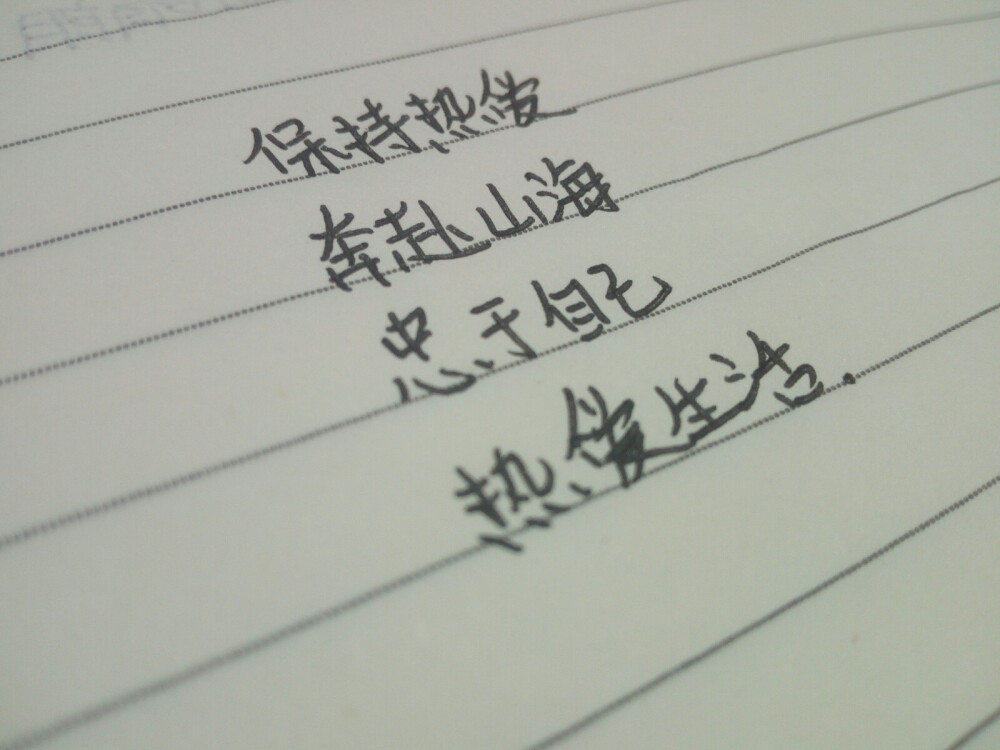 保持热爱
奔赴山海
忠于自己
热爱生活.